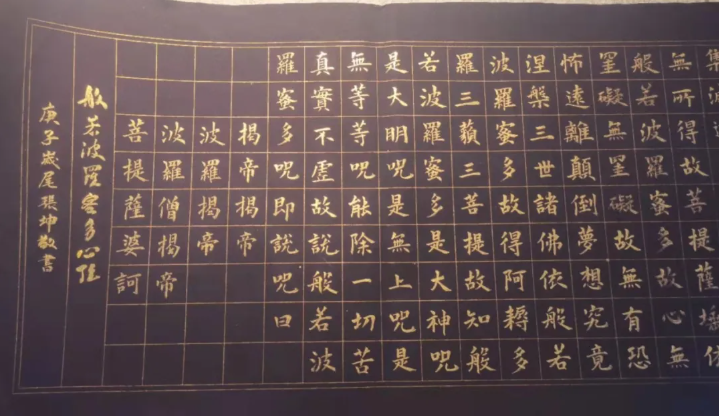 無所得故菩提薩埵依
般若波羅蜜多故心無
罣礙無罣礙故無有恐
怖遠離顛倒夢想究竟
涅槃三世諸佛依般若
波羅蜜多故得阿耨多
羅三藐三菩提故知般
若波羅蜜多是大神呪
是大明呪是無上呪是
無等等呪能除一切苦
真實不虛故說般若波
羅蜜多呪即說呪曰
揭帝揭帝
波羅揭帝
波羅僧揭帝
菩提薩婆訶
般若波羅蜜多心經
庚子歲尾張坤敬書